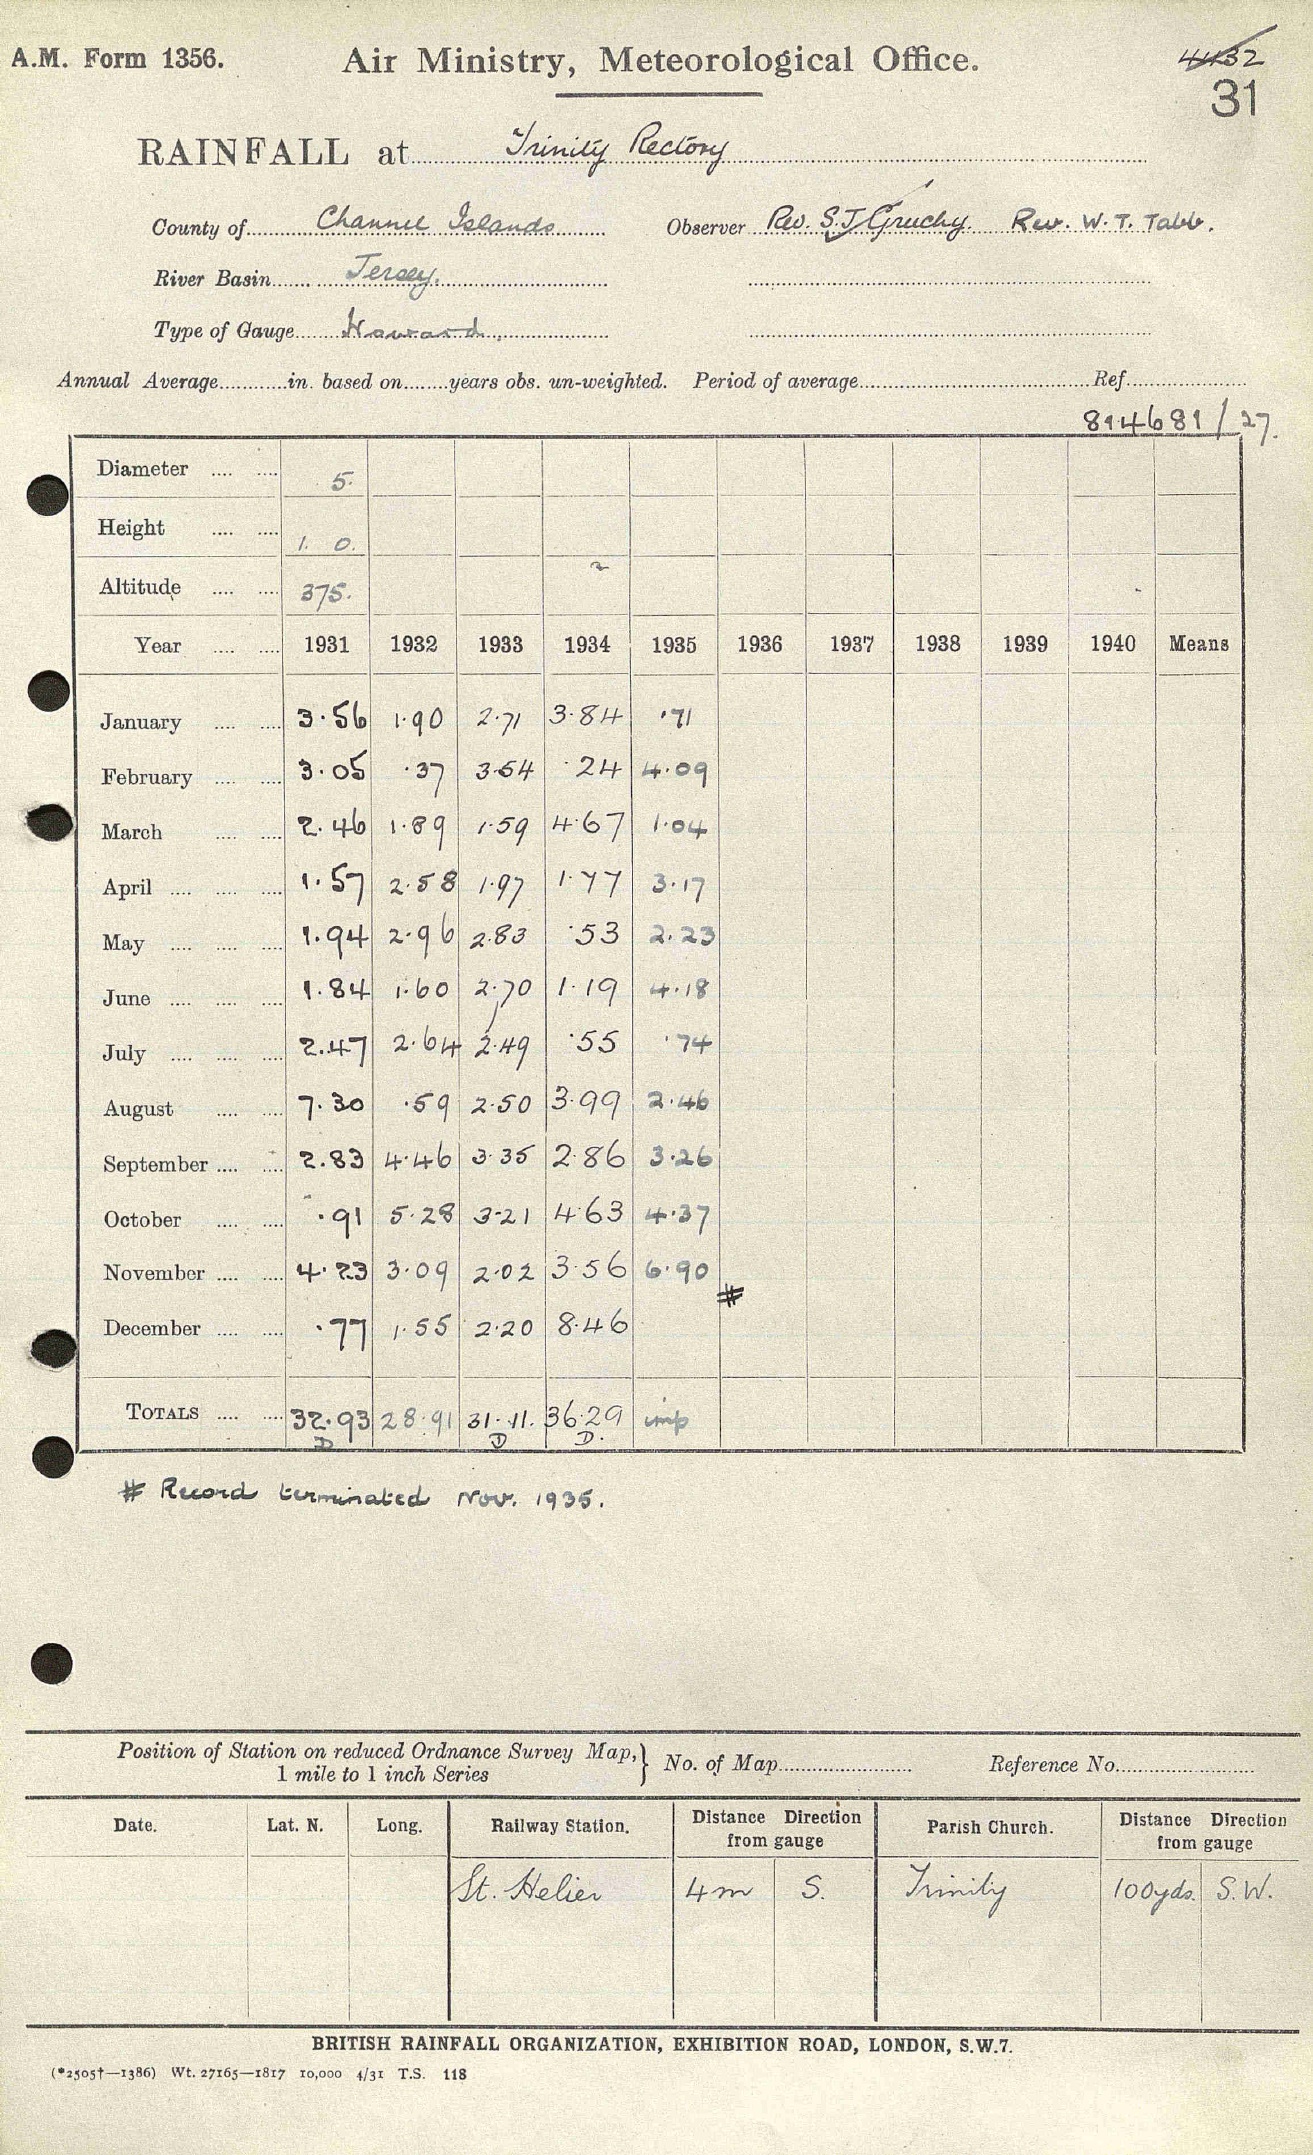 A.M. Form 1356. Air Ministry, Meteorological Office.
31
RAINFALL at Trinity Rectory
County of Channel Islands Observer Rev. S.J Gruchy. Rev. W. T. Tabb.
River Basin Jersey.
Type of Gauge Howard.
Annual Average in. based on years obs. un-weighted. Period of average Ref
814681/27.
Diameter 5.
Height 1. 0.
Altitude 375.
Year 1931 1932 1933 1934 1935 1936 1937 1938 1939 1940 Means
January 3.56 1.90 2.71 3.84 .71
February 3.05 .37 3.54 .24 4.09
March 2.46 1.89 1.59 4.67 1.04
April 1.57 2.58 1.97 1.77 3.17
May 1.94 2.96 2.83 .53 2.23
June 1.84 1.60 2.70 1.19 4.18
July 2.47 2.64 2.49 .55 .74
August 7.30 .59 2.50 3.99 2.46
September 2.83 4.46 3.35 2.86 3.26
October .91 5.28 3.21 4.63 4.37
November 4.23 3.09 2.02 3.56 6.90
#
December .77 1.55 2.20 8.46
TOTALS 32.93 28.91 31.11. 36.29 imp
D D D.
# Record terminated Nov. 1935.
Position of Station on reduced Ordnance Survey Map, 1 mile to 1 inch Series } No. of Map Reference No.
Date. Lat. N. Long. Railway Station. Distance Direction from gauge Parish Church. Distance Direction from gauge
St. Helier 4m S. Trinity 100yds. S.W.
BRITISH RAINFALL ORGANIZATION, EXHIBITION ROAD, LONDON, S.W.7.
(*2505†—1386) Wt. 27165—1817 10,000 4/31 T.S. 118